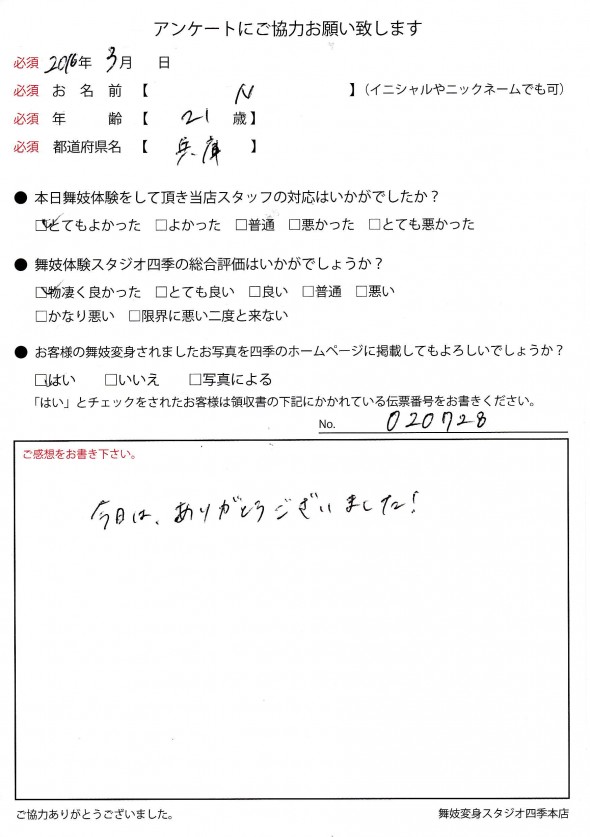 アンケートにご協力お願い致します
必須 2016年 3月 日
必須 お名前 【 N 】（イニシャルやニックネームでも可）
必須 年齢 【 21 歳】
必須 都道府県名 【 兵庫 】
● 本日舞妓体験をして頂き当店スタッフの対応はいかがでしたか？
☑とてもよかった □よかった □普通 □悪かった □とても悪かった
● 舞妓体験スタジオ四季の総合評価はいかがでしょうか？
☑物凄く良かった □とても良い □良い □普通 □悪い
□かなり悪い □限界に悪い二度と来ない
● お客様の舞妓変身されましたお写真を四季のホームページに掲載してもよろしいでしょうか？
☑はい □いいえ □写真による
「はい」とチェックをされたお客様は領収書の下記にかかれている伝票番号をお書きください。
No. 020728
ご感想をお書き下さい。
今日は、ありがとうございました！
ご協力ありがとうございました。
舞妓変身スタジオ四季本店